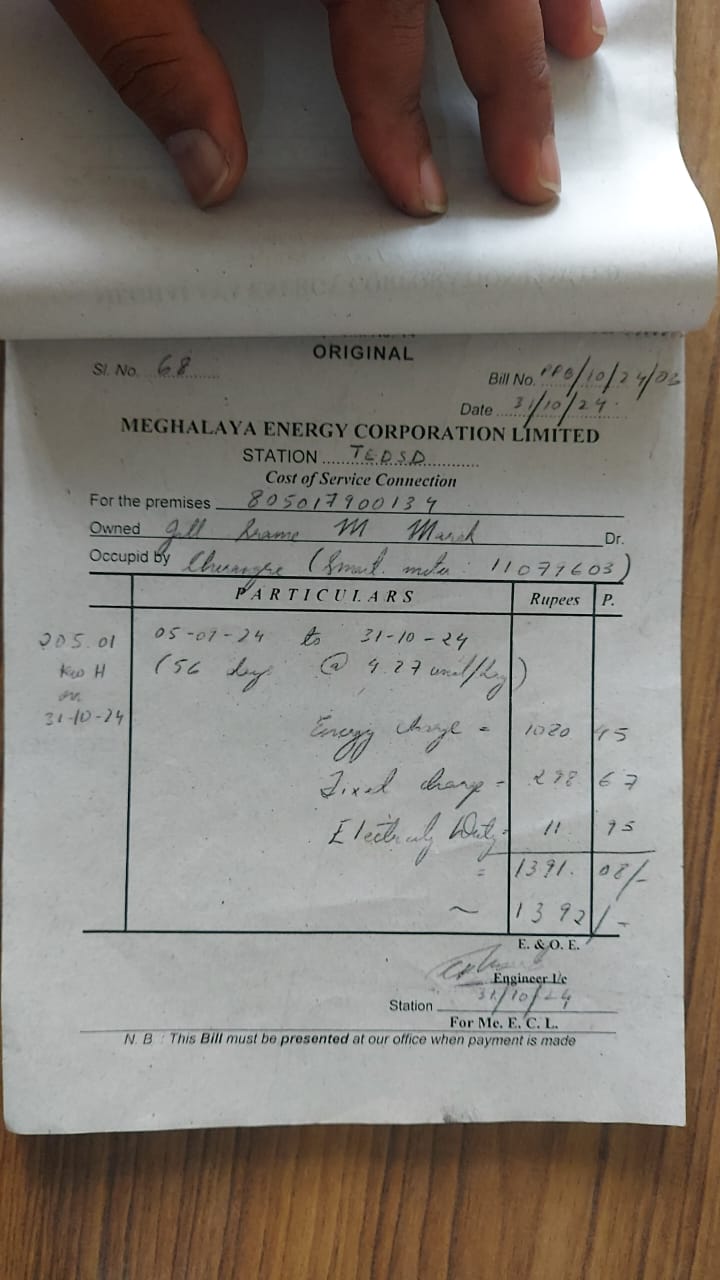 ORIGINAL
Sl. No. 68
Bill No. PPB/10/24/03
Date 31/10/24
MEGHALAYA ENERGY CORPORATION LIMITED
STATION TEDSD
Cost of Service Connection
For the premises 805017900134
Owned M Marak Dr.
Occupid by (Smart meter: 11079603)
PARTICULARS Rupees P.
205.01 05-09-24 to 31-10-24
Kw H (56 days @ 4.27 unit/day)
on
31-10-24
Energy charge = 1080 45
Fixed charge = 298 67
Electricity Duty = 11 95
= 1391. 08/-
~ 1392/-
E. & O. E.
Engineer I/c
Station 31/10/24
For Me. E. C. L.
N. B : This Bill must be presented at our office when payment is made